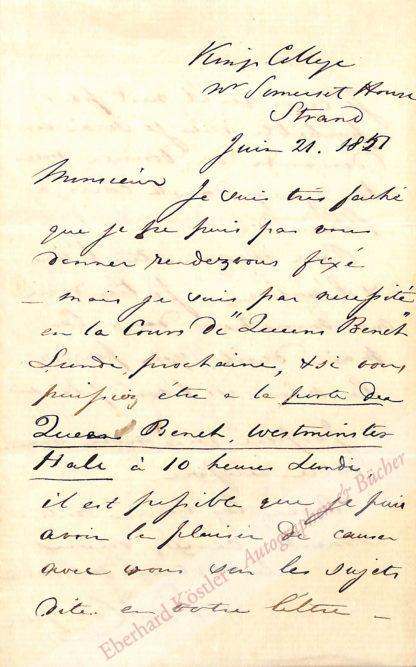 Kings College
Nr Somerset House
Strand
Juin 21. 1851
Monsieur
Je suis très faché
que je ne puis pas vous
donner rendezvous fixé
— mais je suis par necessité
en la Cours de "Queens Bench"
Lundi prochaine, & si vous
puissiez être a la porte de
Queens Bench, Westminster
Hall à 10 heures Lundi,
il est possible que je puis
avoir le plaisir de causer
avec vous sur les sujets
dite en votre lettre —
Eberhard Köstler Autographen & Bücher